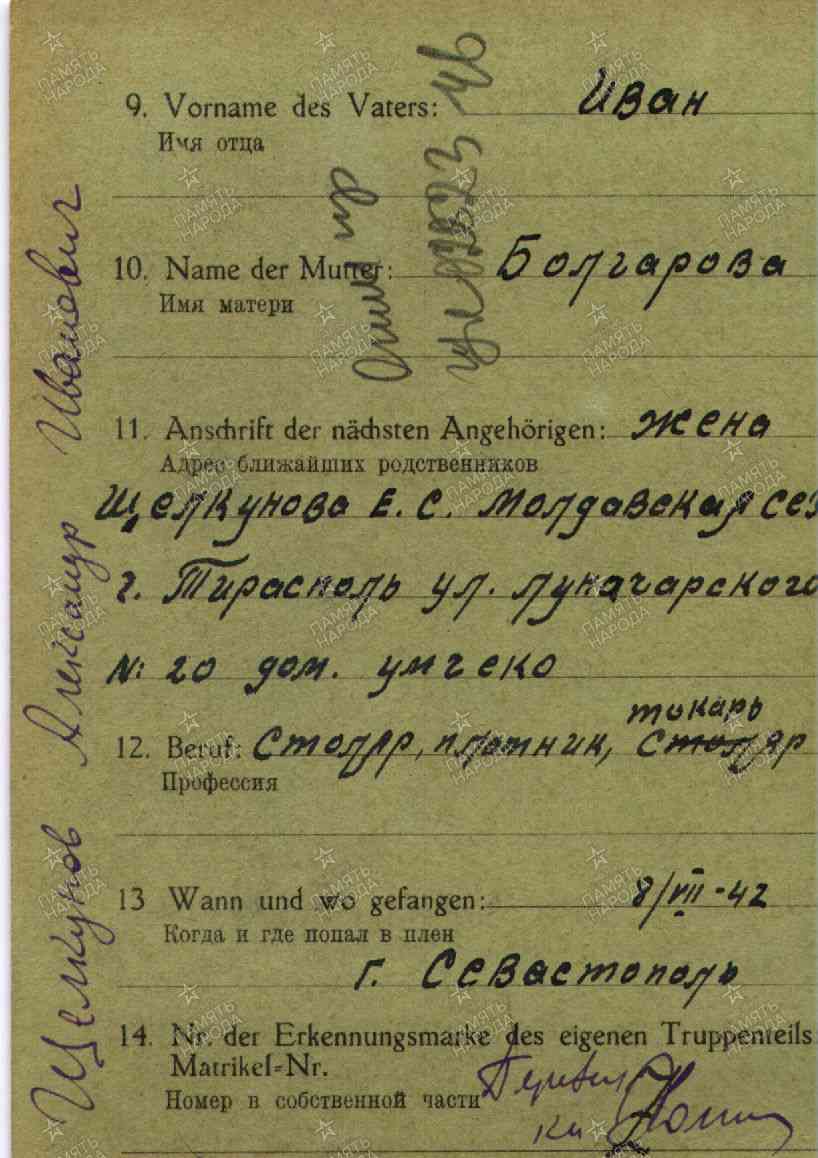 9. Vorname des Vaters: Иван
Имя отца
10. Name der Mutter: Болгарова
Имя матери
11. Anschrift der nächsten Angehörigen: жена
Адрес ближайших родственников
Щелкунова Е. С. Молдавская
г. Тирасполь ул. Луначарского
№ 20 дом.
12. Beruf: Столяр, плотник, столяр токарь
Профессия
13 Wann und wo gefangen: 8/VII-42
Когда и где попал в плен
г. Севастополь
14. Nr. der Erkennungsmarke des eigenen Truppenteils:
Matrikel-Nr.
Номер в собственной части
Щелкунов Александр Иванович
ПАМЯТЬ НАРОДА